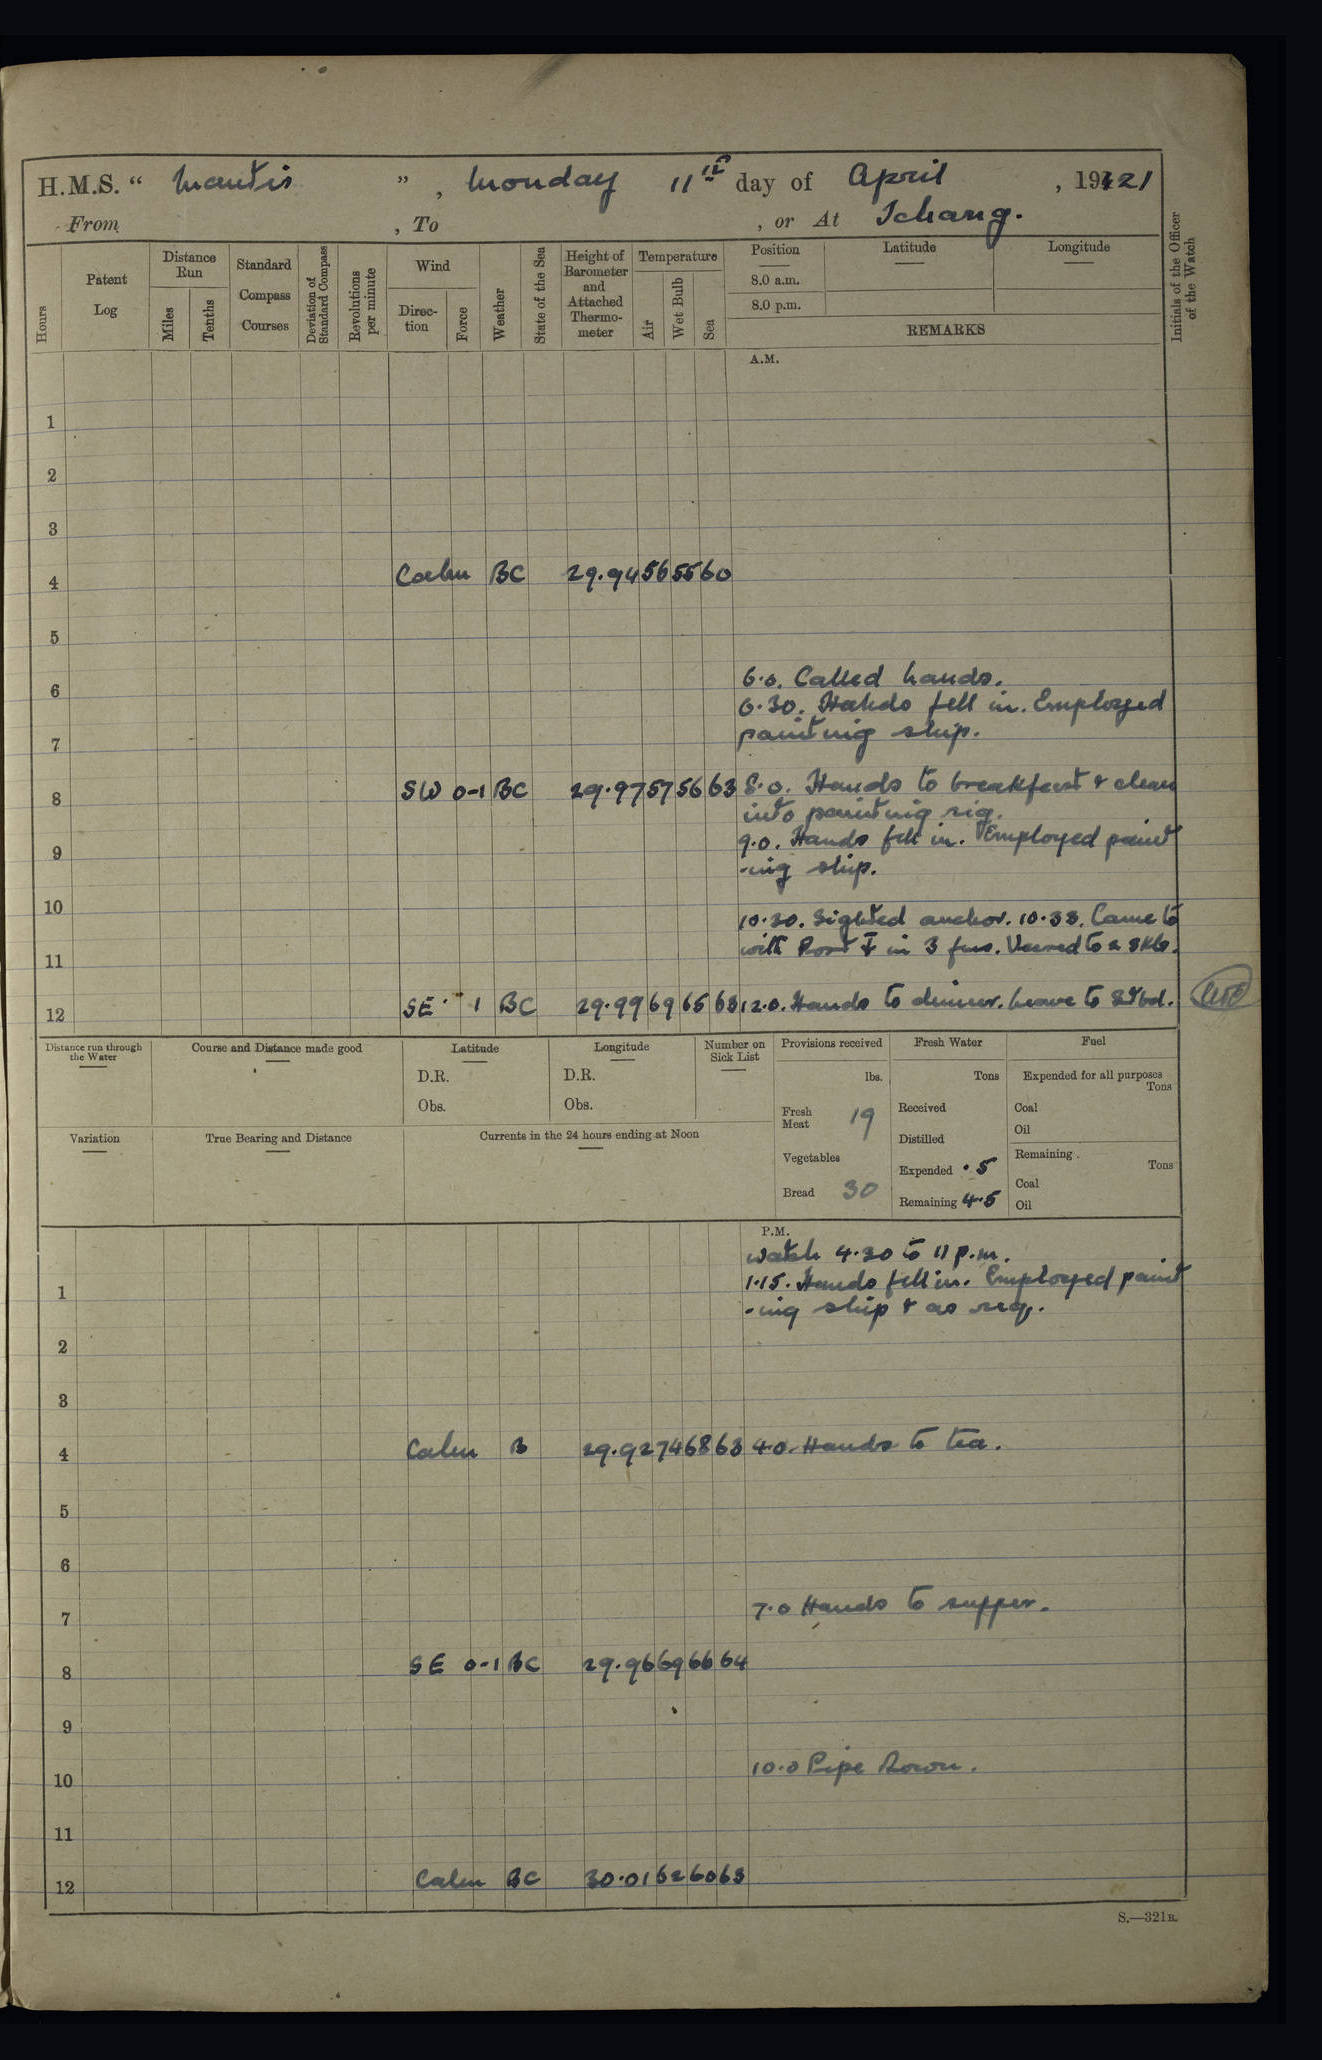 H.M.S. “ Mantis ” , Monday 11th day of April , 1921
From , To , or At Ichang.
Hours
Patent Log
Distance Run
Miles
Tenths
Standard Compass Courses
Deviation of Standard Compass
Revolutions per minute
Wind
Direc-tion
Force
Weather
State of the Sea
Height of Barometer and Attached Thermo-meter
Temperature
Air
Wet Bulb
Sea
Position Latitude Longitude
8.0 a.m.
8.0 p.m.
REMARKS
Initials of the Officer of the Watch
A.M.
1
2
3
4 Calm BC 29.94 56 55 60
5
6 6.0. Called hands.
6.30. Hands fell in. Employed
7 painting ship.
8 SW 0-1 BC 29.97 57 56 63 8.0. Hands to breakfast & clean
into painting rig.
9 9.0. Hands fell in. Employed paint
-ing ship.
10 10.30. Sighted anchor. 10.33. Came to
11 with Port ⚓ in 3 fms. Veered to 2 Skls.
12 SE 1 BC 29.99 69 65 63 12.0. Hands to dinner. Leave to Stbd.
Distance run through the Water
Course and Distance made good
Latitude
D.R.
Obs.
Longitude
D.R.
Obs.
Number on Sick List
Provisions received
lbs.
Fresh Meat 19
Vegetables
Bread 30
Fresh Water
Tons
Received
Distilled
Expended .5
Remaining 4.5
Fuel
Expended for all purposes
Tons
Coal
Oil
Remaining
Tons
Coal
Oil
Variation
True Bearing and Distance
Currents in the 24 hours ending at Noon
P.M.
watch 4.30 to 11 p.m.
1 1.15. Hands fell in. Employed paint
-ing ship & as req.
2
3
4 Calm B 29.92 74 68 63 4.0. Hands to tea.
5
6
7 7.0 Hands to supper.
8 SE 0-1 BC 29.96 69 66 64
9
10 10.0 Pipe Down.
11
12 Calm BC 30.01 62 60 63
S.—321B.